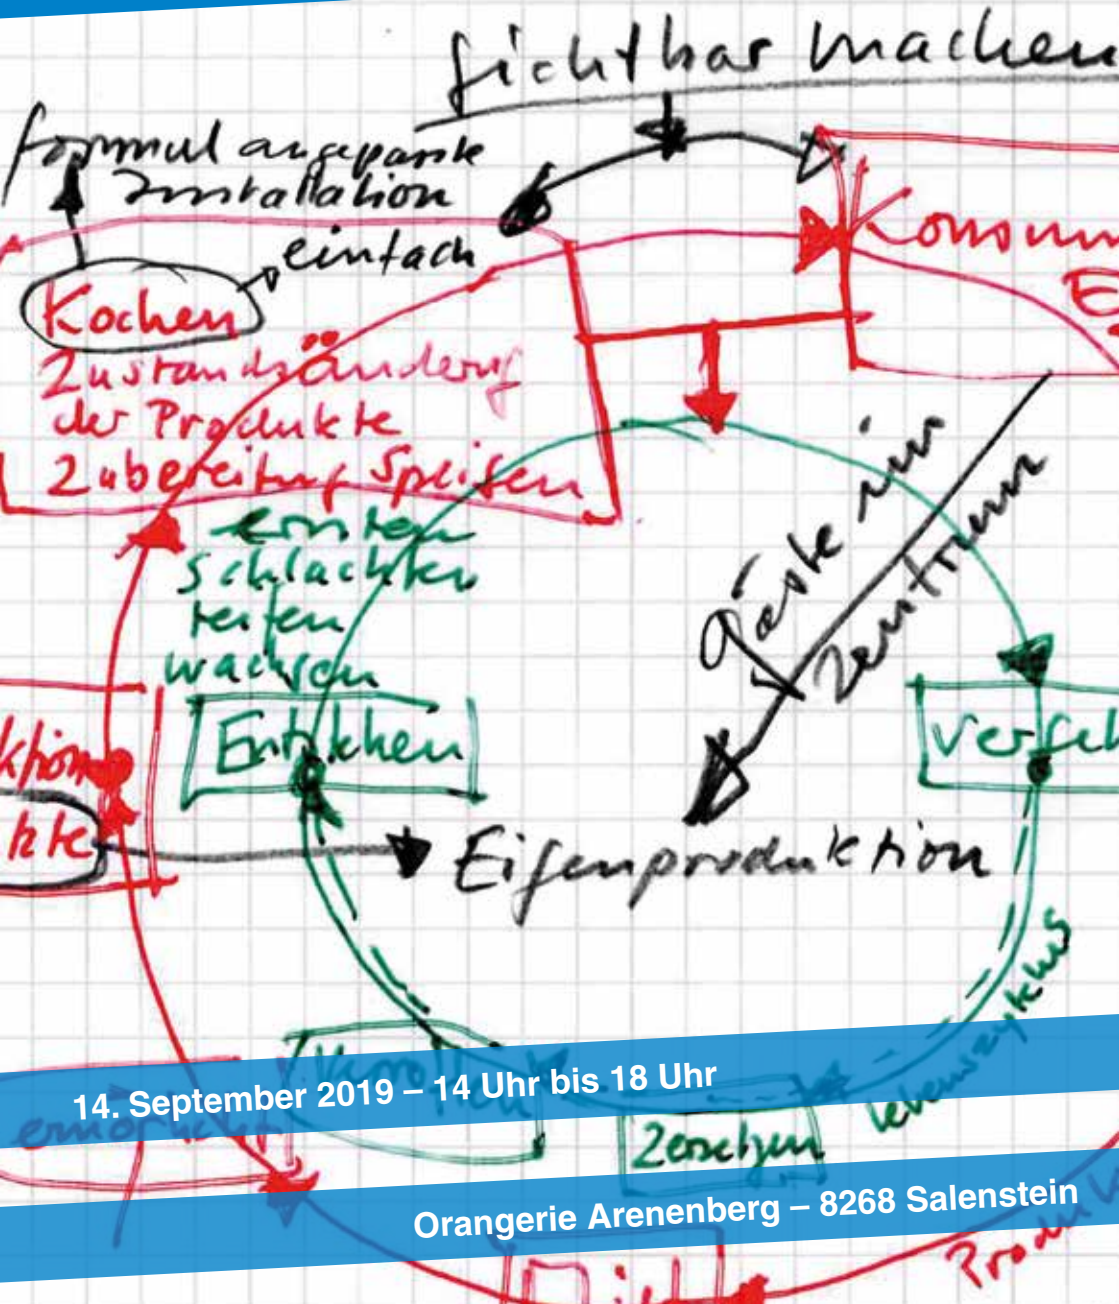 sichtbar machen
formal angepasste
Installation
einfach
Kochen
Zustandsänderung
der Produkte
Zubereitung Speisen
Konsum
ernten
schlachten
reifen
wachsen
Entstehen
Gäste im
Zentrum
ktion
kte
Eigenproduktion
Lebenszyklus
14. September 2019 – 14 Uhr bis 18 Uhr
Zersetzen
Orangerie Arenenberg – 8268 Salenstein